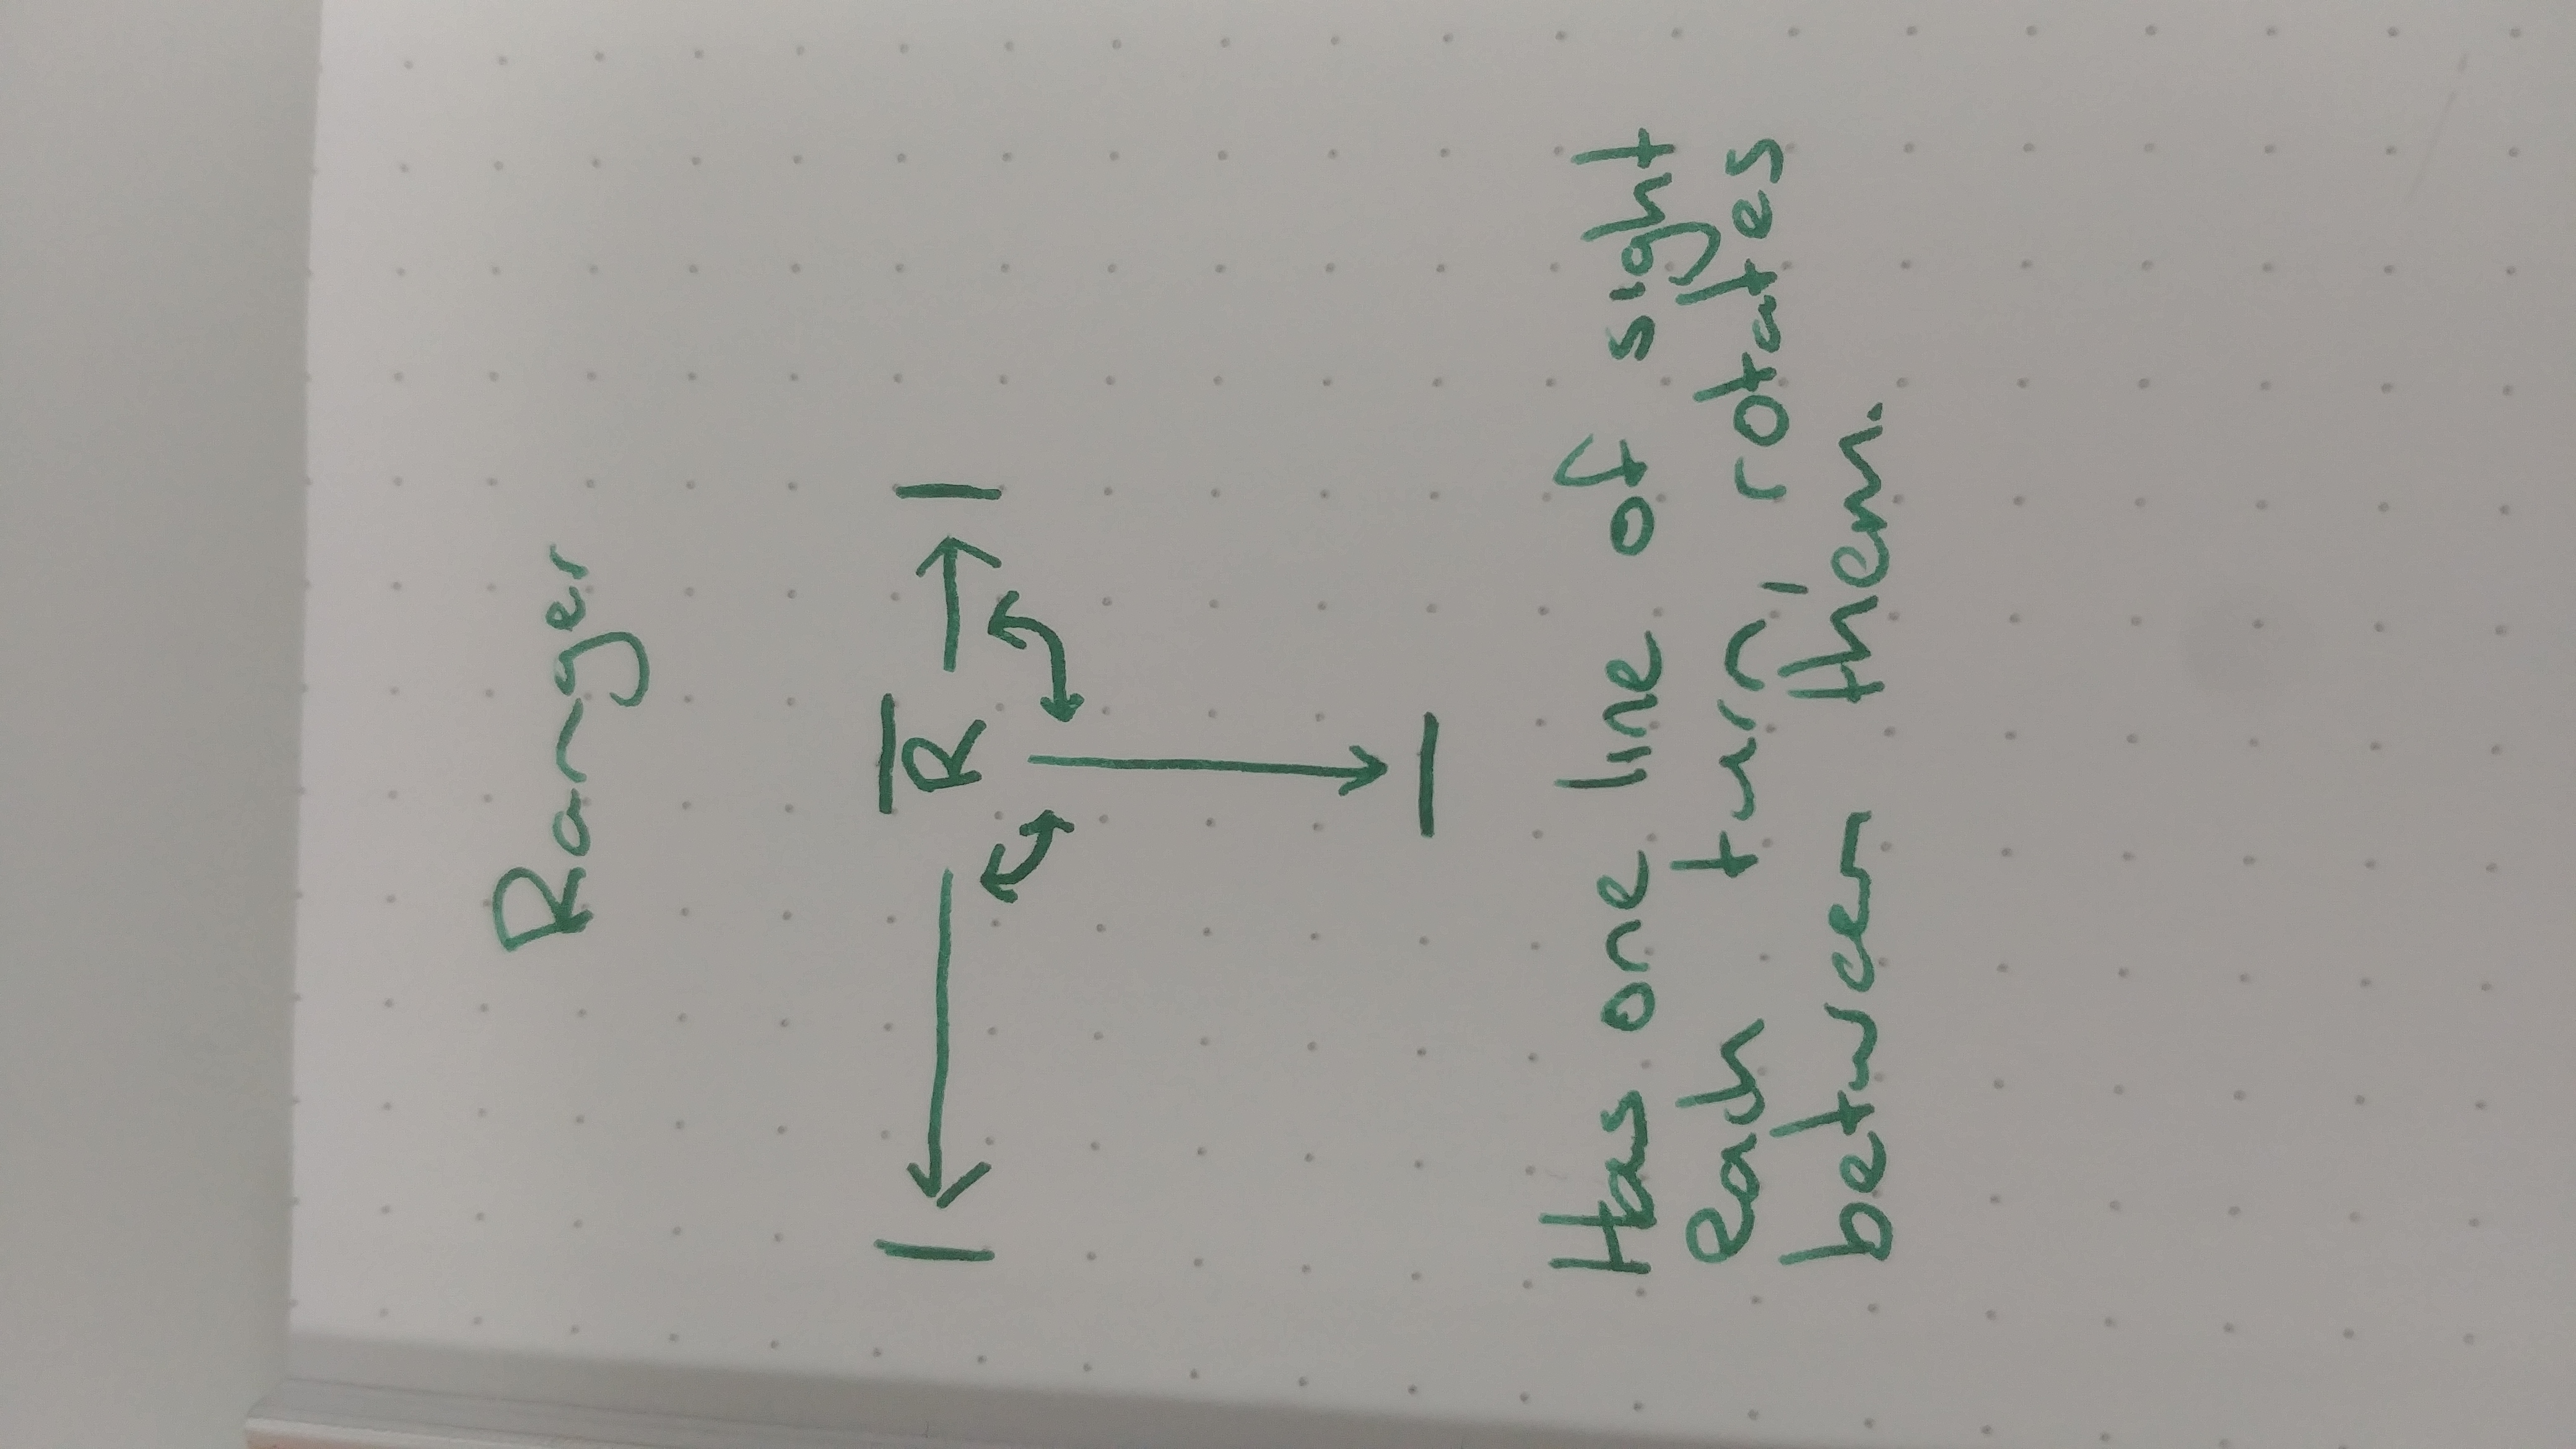 Ranger
R
Has one line of sight
each turn, rotates
between them.